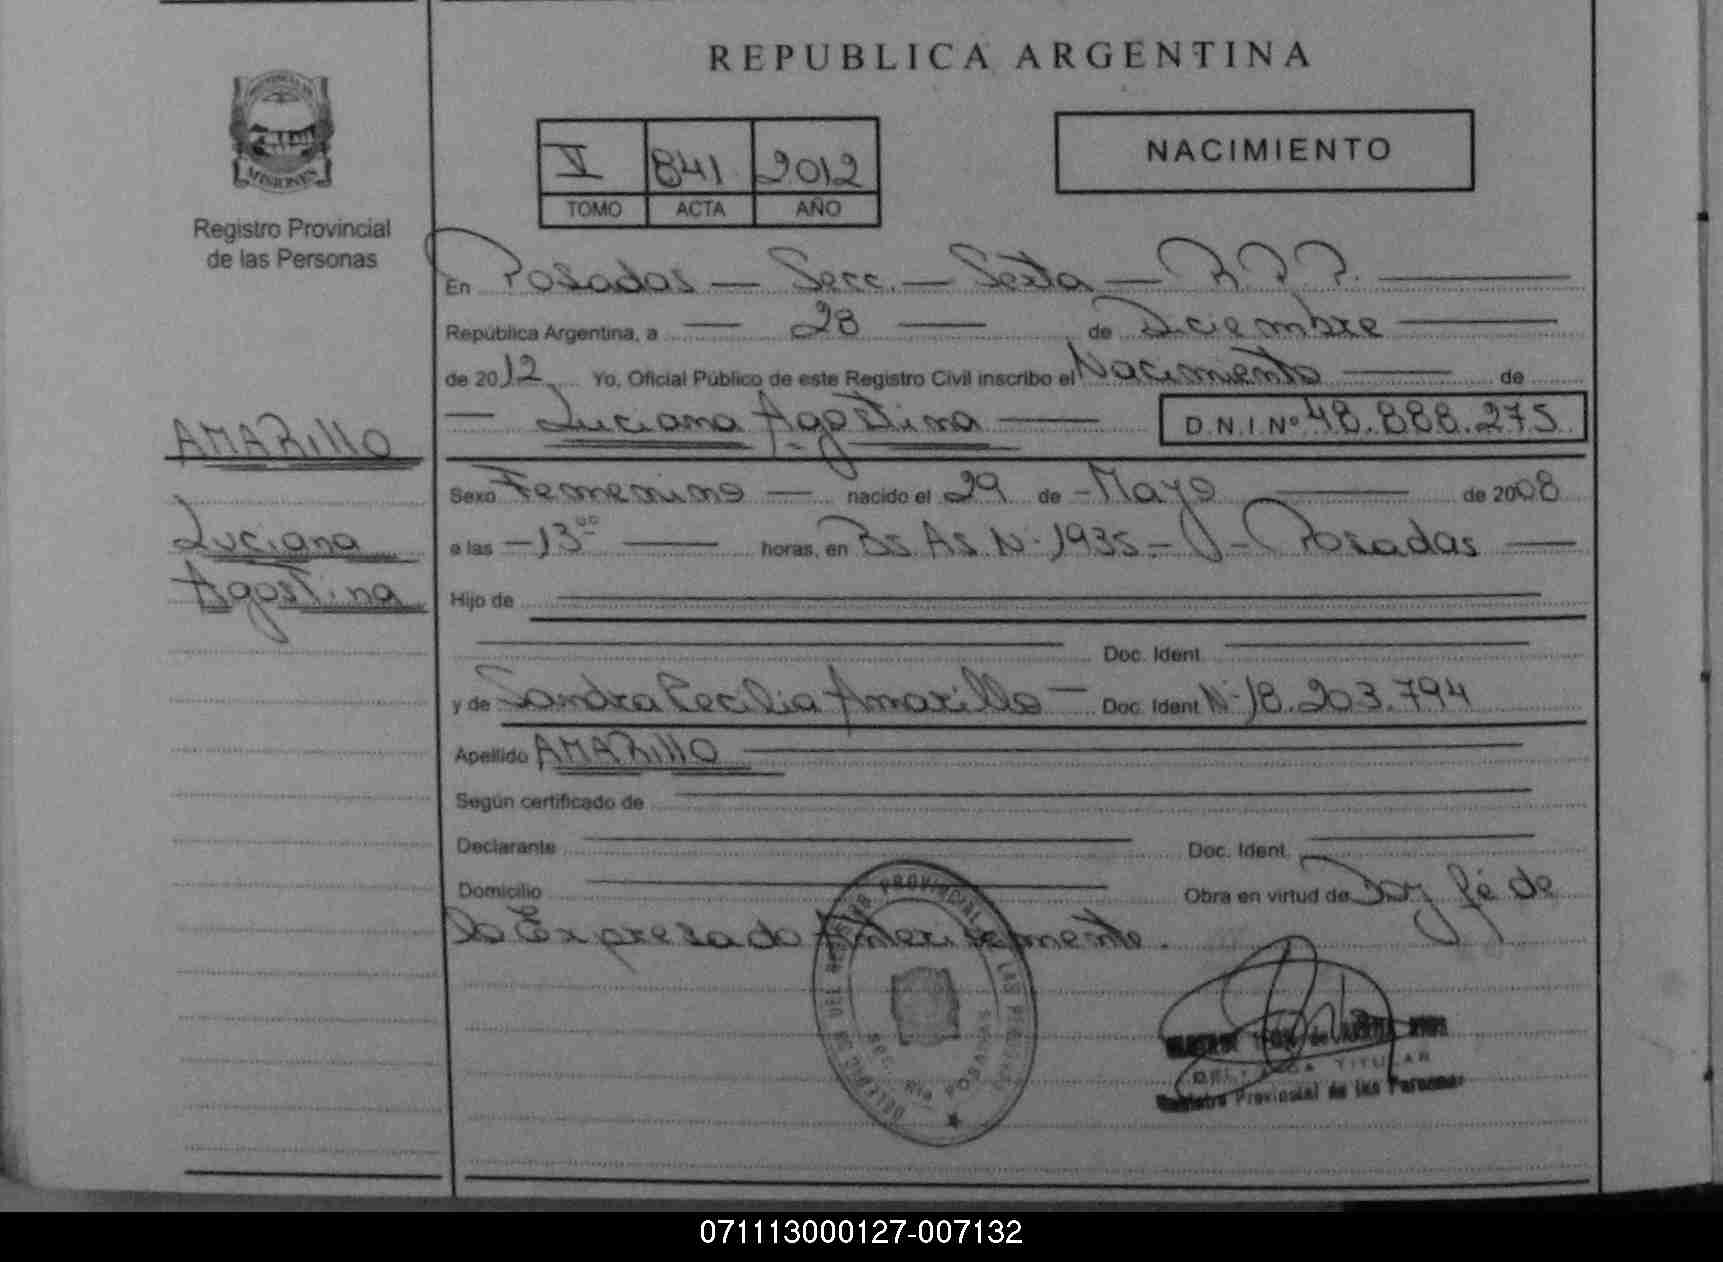 REPUBLICA ARGENTINA
MISIONES
Registro Provincial
de las Personas
V 841 2012
TOMO ACTA AÑO
NACIMIENTO
En Posadas — Secc. — Sexta — R.P.P.
República Argentina, a — 28 — de Diciembre
de 2012 Yo, Oficial Público de este Registro Civil inscribo el Nacimiento — de
— Luciana Agostina — D.N.I Nº 48.888.275
AMARILLO
Luciana
Agostina
Sexo Femenino — nacido el 29 de - Mayo — de 2008
a las - 13 00 — horas, en Bs.As. N· 1935 - - Posadas —
Hijo de
Doc. Ident.
y de Sandra Cecilia Amarillo — Doc. Ident N· 18.203.794
Apellido AMARILLO
Según certificado de
Declarante Doc. Ident.
Domicilio Obra en virtud de Doy fé de
lo Expresado Anteriormente.
TITULAR
Registro Provincial de las Personas
071113000127-007132